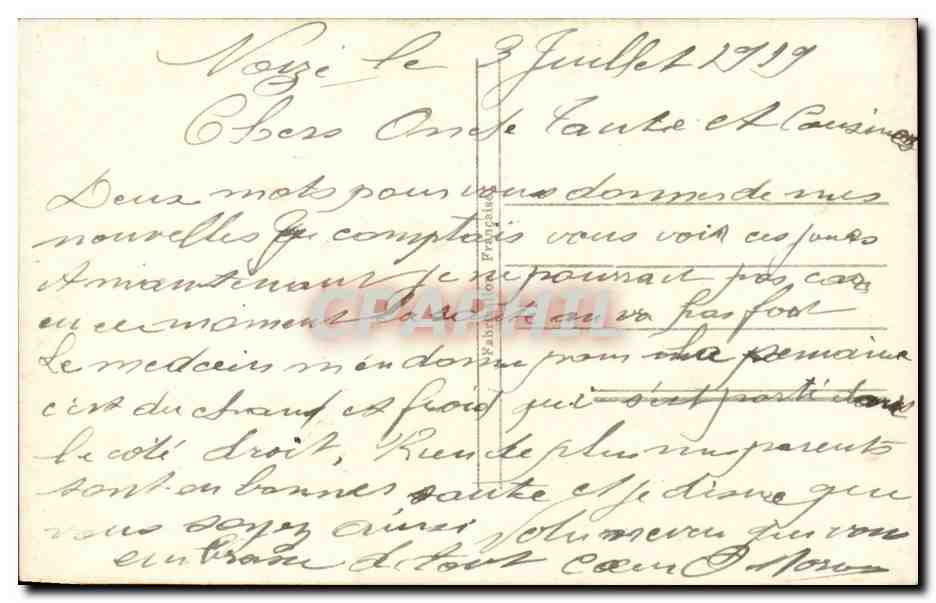 Noizé le 3 Juillet 1919
Chers Oncle Tante et Cousines
Deux mots pour vous donner de mes
nouvelles Je comptais vous voir ces jours
A maintenant je ne pourrait pas car
en ce moment la santé ne va pas fort
Le medecin m'en donne pour une semaine
c'est du chaud et froid qui s'est porté dans
le côté droit, Rien de plus mes parents
sont en bonnes santé et je désire que
vous soyez ainsi Votre neveu qui vous
embrasse de tout cœur
Fabrication Française
CPAPHIL